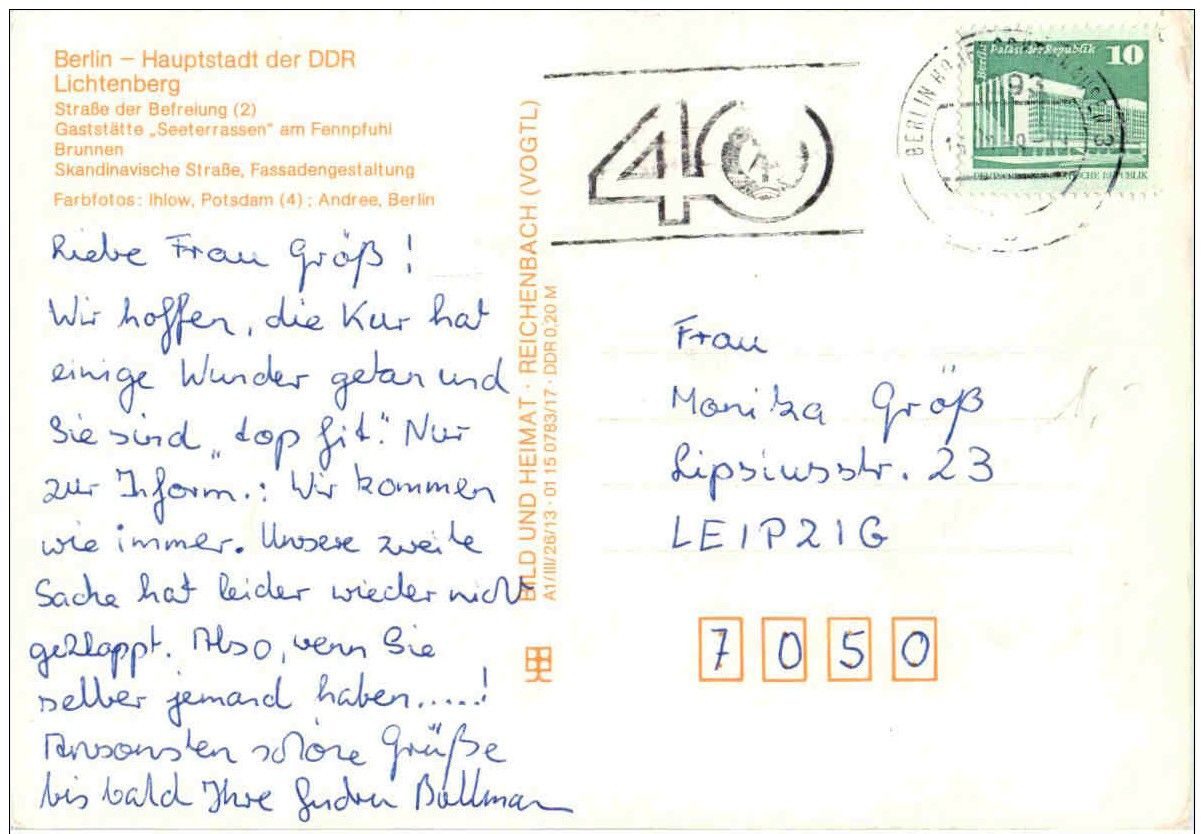 Berlin – Hauptstadt der DDR
Lichtenberg
Straße der Befreiung (2)
Gaststätte „Seeterrassen" am Fennpfuhl
Brunnen
Skandinavische Straße, Fassadengestaltung
Farbfotos: Ihlow, Potsdam (4); Andree, Berlin
Liebe Frau Größ!
Wir hoffen, die Kur hat
einige Wunder getan und
Sie sind „top fit." Nur
zur Inform.: Wir kommen
wie immer. Unsere zweite
Sache hat leider wieder nicht
geklappt. Also, wenn Sie
selber jemand haben.....!
Ansonsten schöne Grüße
bis bald Ihre Gudrun Bollmann
BILD UND HEIMAT · REICHENBACH (VOGTL)
A1/III/26/13 · 01 15 0783/17 · DDR 0,20 M
40
BERLIN
93
3
Berlin Palast der Republik
10
DEUTSCHE DEMOKRATISCHE REPUBLIK
Frau
Monika Größ
Lipsiusstr. 23
LEIPZIG
7050